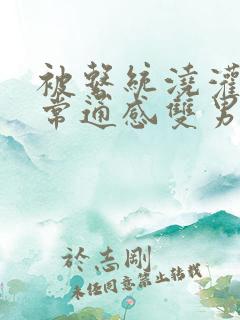 被繫統澆灌
常通感雙男
於志剛
未經同意禁止轉載